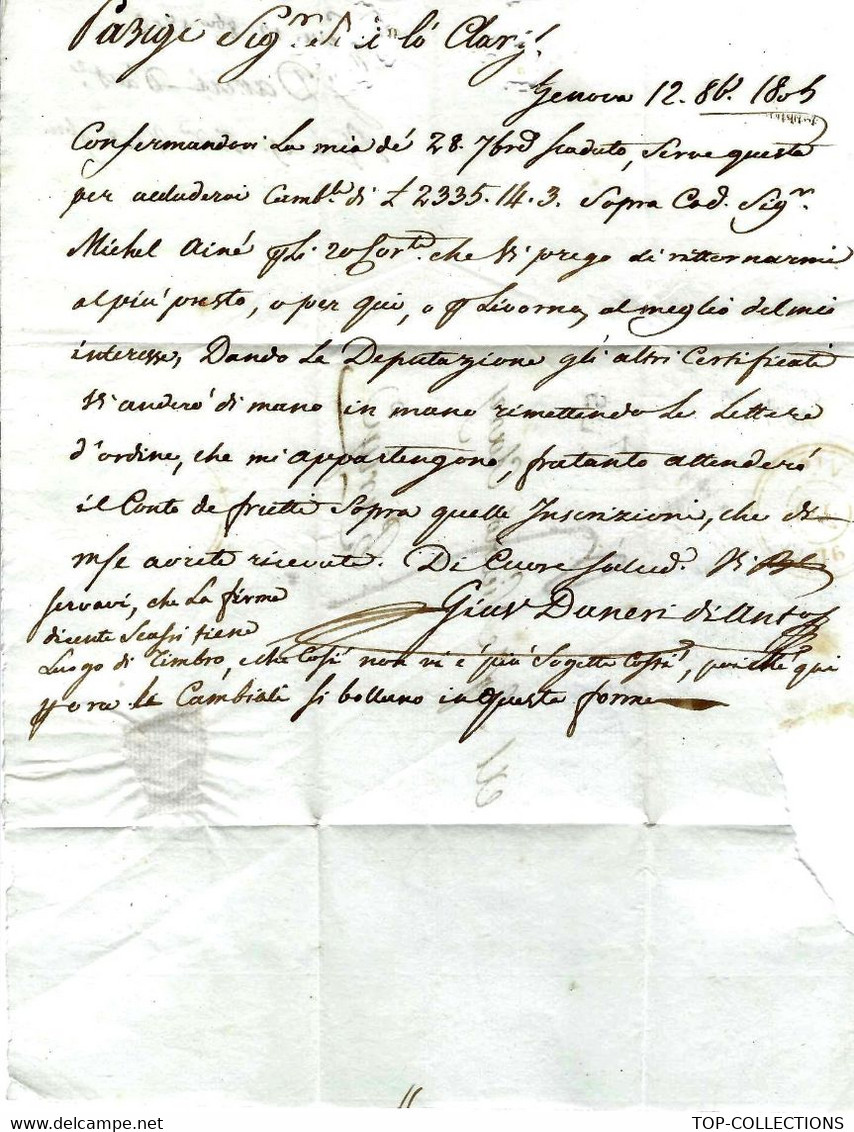 Parigi Sig.r
Genova 12. 8b.e 1805
Confermandovi La mia de' 28. 7bre scaduto, serve questa
per accludervi Camb.le di £ 2335.14.3. Sopra Cod. Sig.r
Michel Ainé p Li 20 Cor.te che Vi prego di rittornarmi
al più presto, o per qui, o p Livorno, al meglio del mio
interesse, Dando La Deputazione gli altri Certificati
Vi anderó di mano in mano rimettendo Le Lettere
d'ordine, che mi appartengono, fratanto attenderó
il Conto de frutti Sopra quelle Inscrizioni, che di
avrete ricevute. Di Cuore Salud.o Vi
servavi, che La firma
dicente Scassi tiene
Luogo di Timbro, e che Così non vi è più Sogetta Costì, poiché qui
p ora le Cambiali si bollano in questa forma
Giav. Daneri di Ant.o
TOP-COLLECTIONS